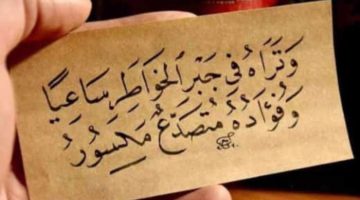 وَتَرَاهُ فِي جَبْرِ الخَوَاطِرِ سَاعِيًا
وَفُؤَادُهُ مُتَصَدِّعٌ مَكْسُورُ